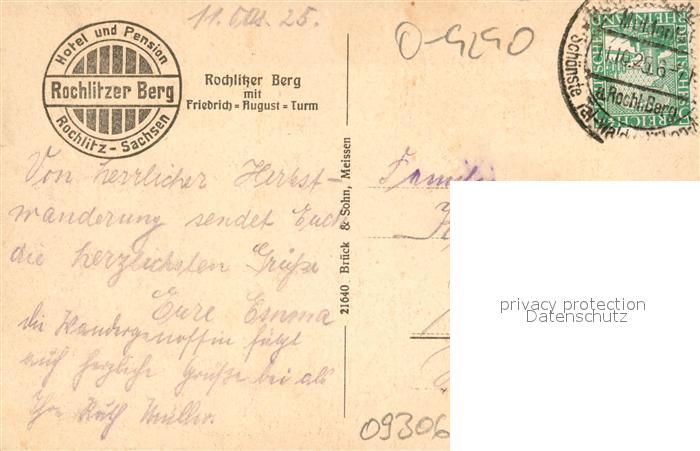 11. Okt. 25.
O-9290
Hotel und Pension
Rochlitzer Berg
Rochlitz-Sachsen
Rochlitzer Berg
mit
Friedrich=August=Turm
Von herrlicher Herbst-
wanderung sendet Euch
die herzlichsten Grüße
Eure Emma
die Wandergenossin fügt
auch herzliche Grüße bei als
Ihre Ruth Müller.
21640 Brück & Sohn, Meissen
Familie
DEUTSCHES REICH
a. Rochl. Berg
Schönste
privacy protection
Datenschutz
09306